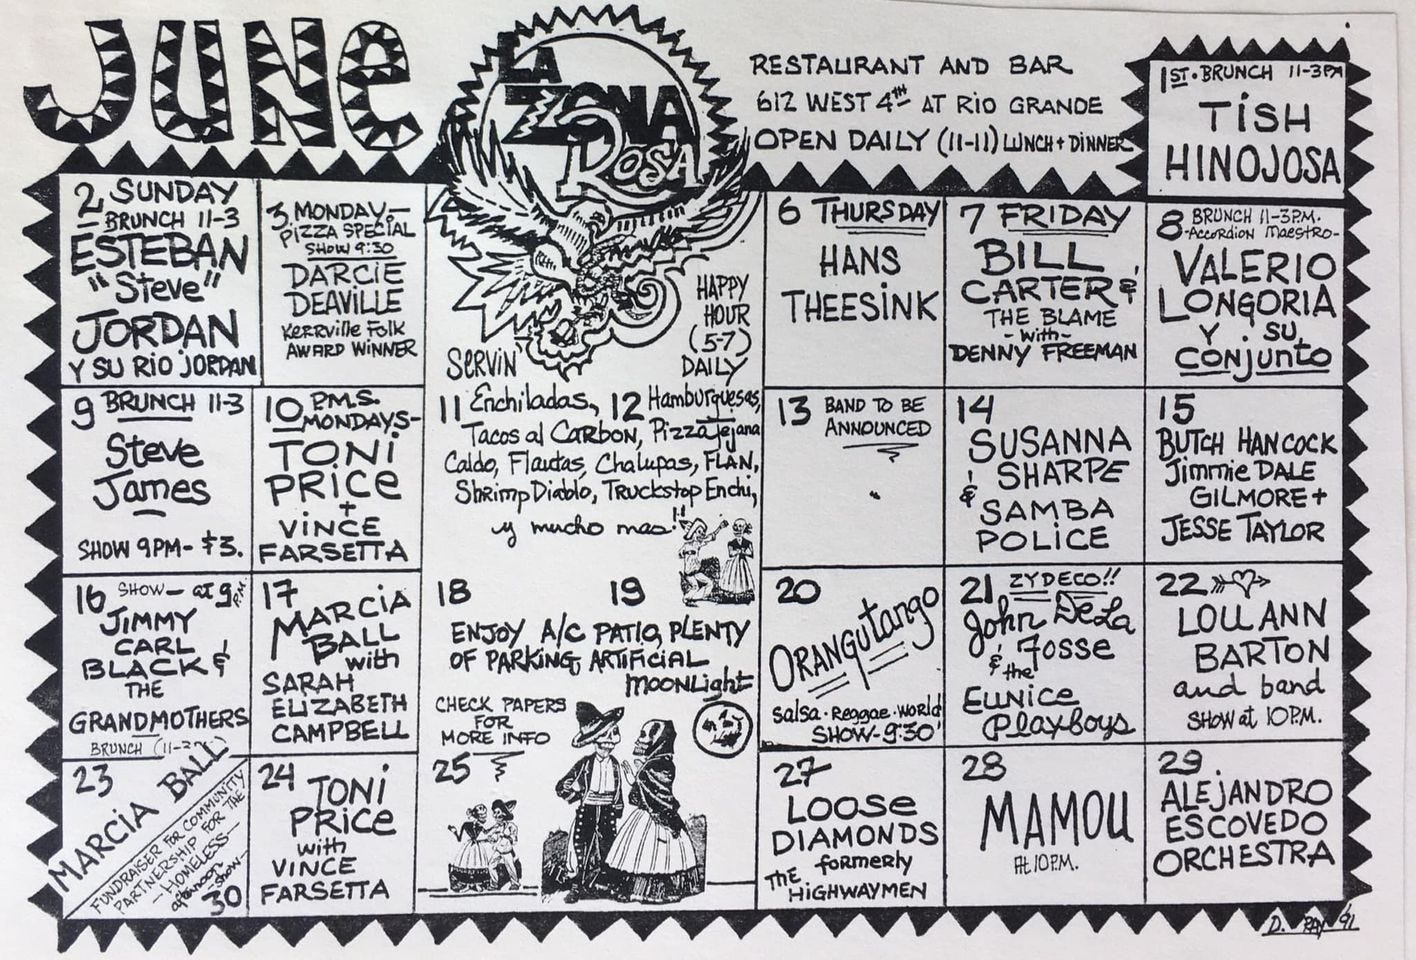 JUNE
LA
ZONA
ROSA
RESTAURANT AND BAR
612 WEST 4TH AT RIO GRANDE
OPEN DAILY (11-11) LUNCH + DINNER
1ST • BRUNCH 11-3PM
TISH
HINOJOSA
2 SUNDAY
BRUNCH 11-3
ESTEBAN
"Steve"
JORDAN
Y SU RIO JORDAN
3 MONDAY—
PIZZA SPECIAL
SHOW 9:30
DARCIE
DEAVILLE
KERRVILLE FOLK
AWARD WINNER
HAPPY
HOUR
(5-7)
DAILY
SERVIN'
6 THURSDAY
HANS
THEESINK
7 FRIDAY
BILL
CARTER &
THE BLAME
- with -
DENNY FREEMAN
8 BRUNCH 11-3P.M.
-Accordion Maestro-
VALERIO
LONGORIA
Y SU
CONJUNTO
9 BRUNCH 11-3
Steve
James
SHOW 9PM- $3.
10 P.M.S.
MONDAYS-
TONI
PRICE
+
VINCE
FARSETTA
11 Enchiladas, 12 Hamburguesas,
Tacos al Carbon, Pizza Tejana
Caldo, Flautas, Chalupas, FLAN,
Shrimp Diablo, Truckstop Enchi,
y mucho mas!!
13 BAND TO BE
ANNOUNCED
14
SUSANNA
SHARPE
&
SAMBA
POLICE
15
BUTCH HANCOCK
Jimmie DALE
GILMORE +
JESSE TAYLOR
16 SHOW— at 9P.M.
JIMMY
CARL
BLACK &
THE
GRANDMOTHERS
17
MARCIA
BALL
with
SARAH
ELIZABETH
CAMPBELL
18 19
ENJOY A/C PATIO, PLENTY
OF PARKING, ARTIFICIAL
MOONLIGHT
CHECK PAPERS
FOR
MORE INFO
20
ORANGUTANGO
SALSA • Reggae • WORLD
SHOW-9:30'
21 ZYDECO!!
John DeLa
Fosse
& the
Eunice
Playboys
22
LOU ANN
BARTON
and band
SHOW at 10P.M.
BRUNCH (11-2)
23
MARCIA BALL
FUNDRAISER FOR COMMUNITY
PARTNERSHIP FOR THE
- HOMELESS -
afternoon
show-
30
24
TONI
PRICE
with
VINCE
FARSETTA
25
27
LOOSE
DIAMONDS
formerly
THE
HIGHWAYMEN
28
MAMOU
AT 10P.M.
29
ALEJANDRO
ESCOVEDO
ORCHESTRA
D. RAY '91